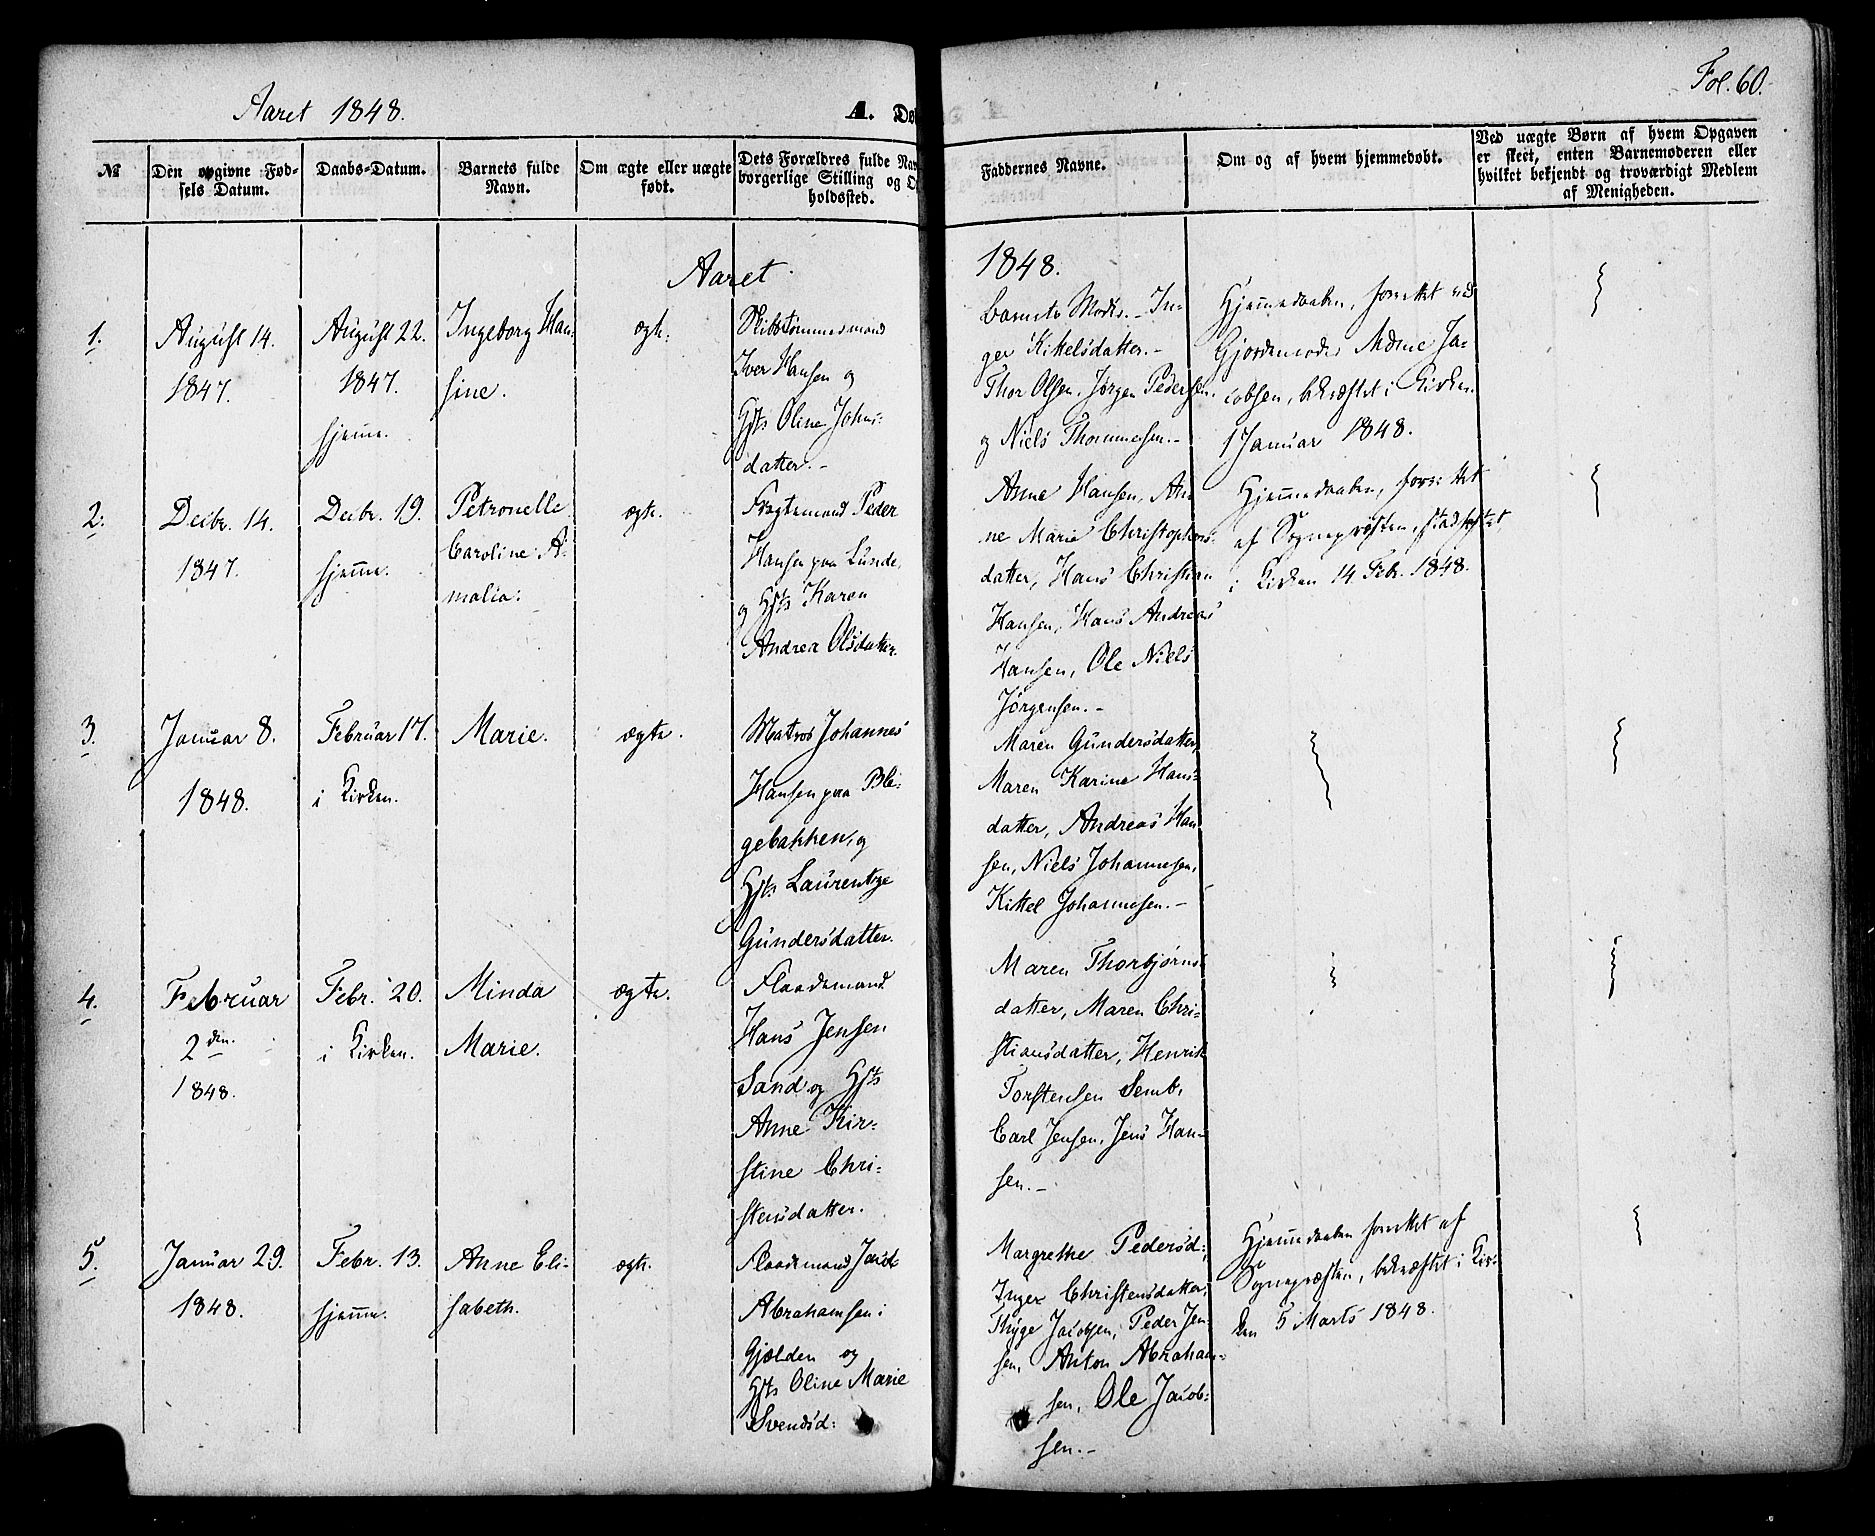 Fol. 60.
Aaret 1848.
A. Dø
№
Den opgivne Fød-
sels Datum.
Daabs-Datum.
Barnets fulde
Navn.
Om ægte eller uægte
født.
Dets Forældres fulde Nav
borgerlige Stilling og O
holdssted.
Faddernes Navne.
Om og af hvem hjemmedøbt.
Ved uægte Børn af hvem Opgaven
er skeet, enten Barnemoderen eller
hvilket bekjendt og troværdigt Medlem
af Menigheden.
Aaret 1848.
1.
August 14.
1847.
August 22.
1847.
hjemme.
Ingeborg Han-
sine.
ægte.
Skibstømmermand
Iver Hansen og
Hst Oline Johns-
datter.-
Barnets Moder.- In-
ger Kittelsdatter.-
Thor Olsen, Jørgen Pedersen.
og Niels Thommesen.-
Hjemmedaaben, forrettet ved
Gjordemoder Mdme Ja-
cobsen, bekræftet i Kirken
1 Januar 1848.
2.
Decbr. 14.
1847.
Decbr. 19.
hjemme.
Petronelle
Caroline A-
malia.
ægte.
Fragtemand Peder
Hansen paa Lunde,
og Hst Karen
Andrea Olsdatter.
Anne Hansen, An-
ne Marie Christophers-
datter, Hans Christian
Hansen, Hans Andreas
Hansen, Ole Niels
Jørgensen.-
Hjemmedaaben, forrettet
af Sognepræsten, stadfæstet
i Kirken 14 Febr. 1848.
3.
Januar 8.
1848.
Februar 17.
i Kirken.
Marie.
ægte.
Matros Johannes
Hansen paa Ble-
gebakken, og
Hst Laurentze
Gundersdatter.
Maren Gundersdatter,
Maren Karine Hans-
datter, Andreas Han-
sen, Niels Johannesen,
Kittel Johannesen.-
4.
Februar
2den.
1848.
Febr. 20.
i Kirken.
Minda
Marie.
ægte.
Flaademand
Hans Jensen
Sand og Hst
Anne Kir-
stine Chri-
stensdatter.
Maren Thorbjørns-
datter, Maren Chri-
stiansdatter, Henrik
Torstensen Semb,
Carl Jensen, Jens Han-
sen.-
5.
Januar 29.
1848.
Febr. 13.
hjemme.
Anne Eli-
sabeth.
ægte.
Flaademand Jacob
Abrahamsen i
Gjælden og
Hst Oline Marie
Svendsd:
Margrethe Pedersd:,
Inger Christensdatter,
Thyge Jacobsen, Peder Jen-
sen, Anton Abraham-
sen, Ole Jacob-
sen.-
Hjemmedaaben forrettet af
Sognepræsten, bekræftet i Kir-
ken 5 Marts 1848.